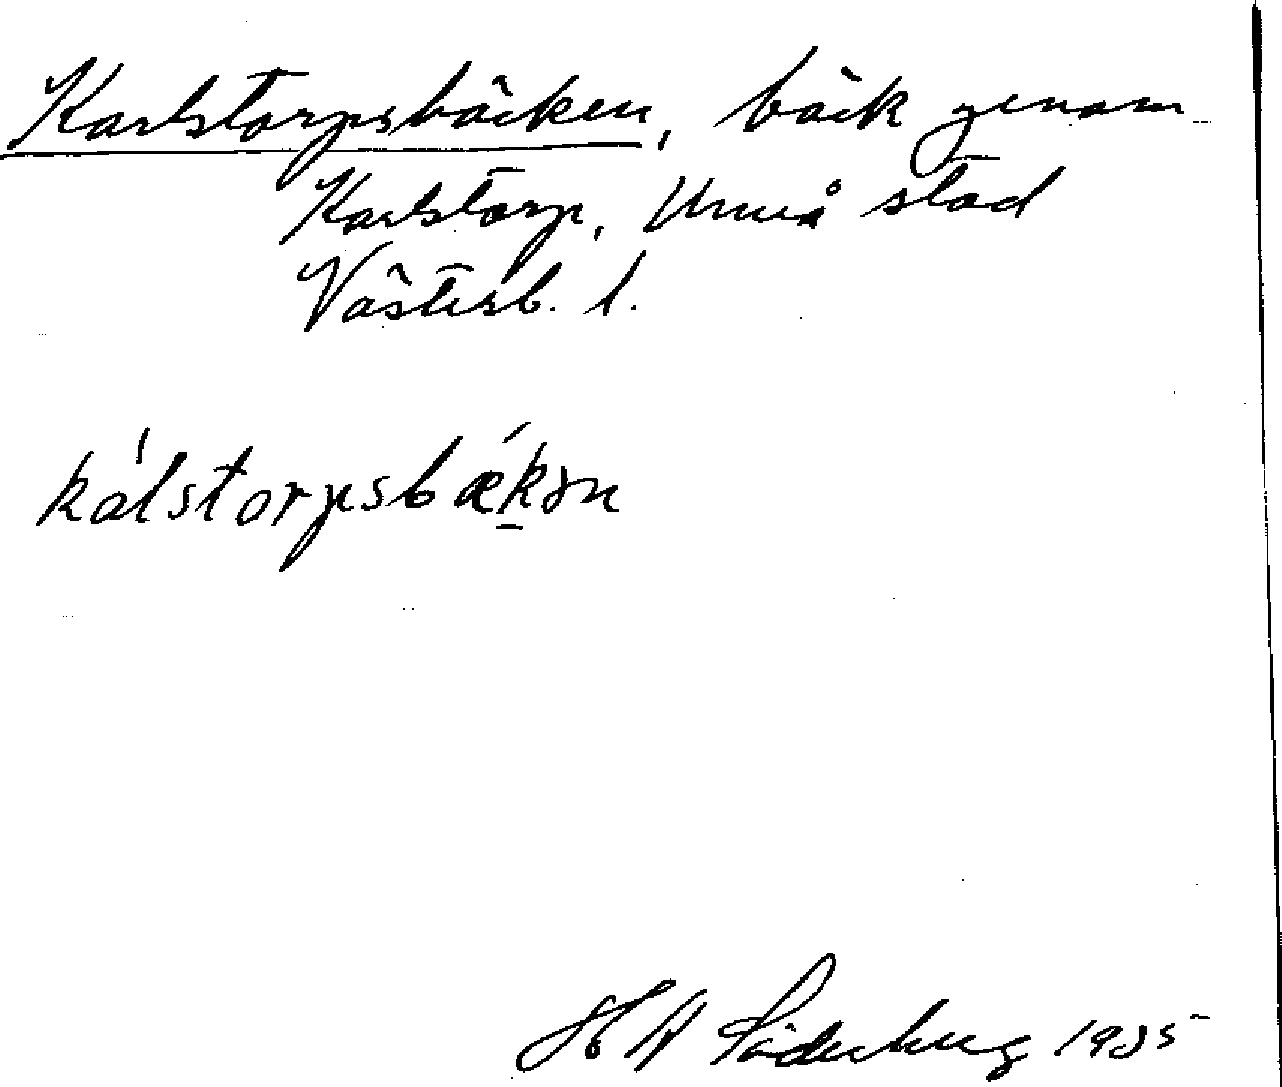 Karlstorpsbäcken, bäck genom
Karlstorp, Umeå stad
Västerb. l.
kálstorpsbǽkən
H A Söderberg 1935